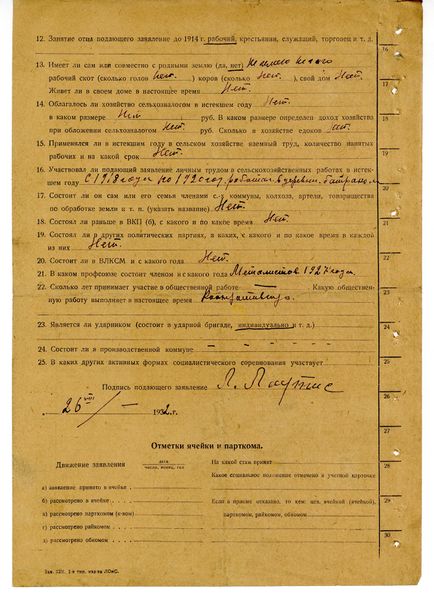 12. Занятие отца подающего заявление до 1914 г. рабочий, крестьянин, служащий, торговец и т. д.
13. Имеет ли сам или совместно с родными землю (да, нет) Не имею
рабочий скот (сколько голов нет.) коров (сколько Нет.), свой дом Нет.
Живет ли в своем доме в настоящее время Нет.
14. Облагалось ли хозяйство сельхозналогом в истекшем году Нет.
в каком размере Нет руб. В каком размере определен доход хозяйства
при обложении сельхозналогом Нет. руб. Сколько в хозяйстве едоков Нет.
15. Применялся ли в истекшем году в сельском хозяйстве наемный труд, количество нанятых
рабочих и на какой срок Нет.
16. Участвовал ли подающий заявление личным трудом в сельскохозяйственных работах в истек-
шем году С 1918 года по 1920 год работал в деревне батраком
17. Состоит ли он сам или его семья членами с.-х. коммуны, колхоза, артели, товарищества
по обработке земли и т. п. (указать название) Нет.
18. Состоял ли раньше в ВКП (б), с какого и по какое время Нет.
19. Состоял ли в других политических партиях, в каких, с какого и по какое время в каждой
из них Нет.
20. Состоит ли в ВЛКСМ и с какого года Нет.
21. В каком профсоюзе состоит членом и с какого года Металистов 1927 года.
22. Сколько лет принимает участие в общественной работе — Какую обществен-
ную работу выполняет в настоящее время
23. Является ли ударником (состоит в ударной бригаде, индивидуально и т. д.)
24. Состоит ли в производственной коммуне — — — —
25. В каких других активных формах социалистического соревнования участвует
Подпись подающего заявление
26/VIII — 1932 г.
Отметки ячейки и парткома.
Движение заявления
дата
число, месяц, год
На какой стаж принят
Какое социальное положение отмечено в учетной карточке
а) заявление принято в ячейке
б) рассмотрено в ячейке
Если в приеме отказано, то кем: цех. ячейкой (ячейкой),
в) рассмотрено парткомом (к-вом)
парткомом, райкомом, обкомом
г) рассмотрено райкомом
д) рассмотрено обкомом
16
17
18
19
20
21
22
23
24
25
26
27
28
29
30